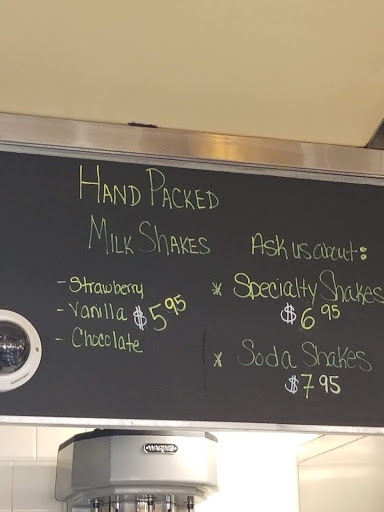 HAND PACKED
MILK SHAKES
- Strawberry
- Vanilla $5.95
- Chocolate
Ask us about:
* Specialty Shakes
$6.95
* Soda Shakes
$7.95
WARING